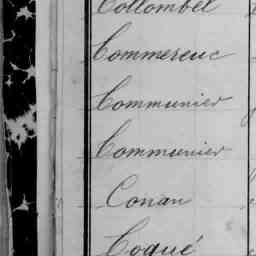 Collombel
Commereuc
Communier
Communier
Conan
Coqué